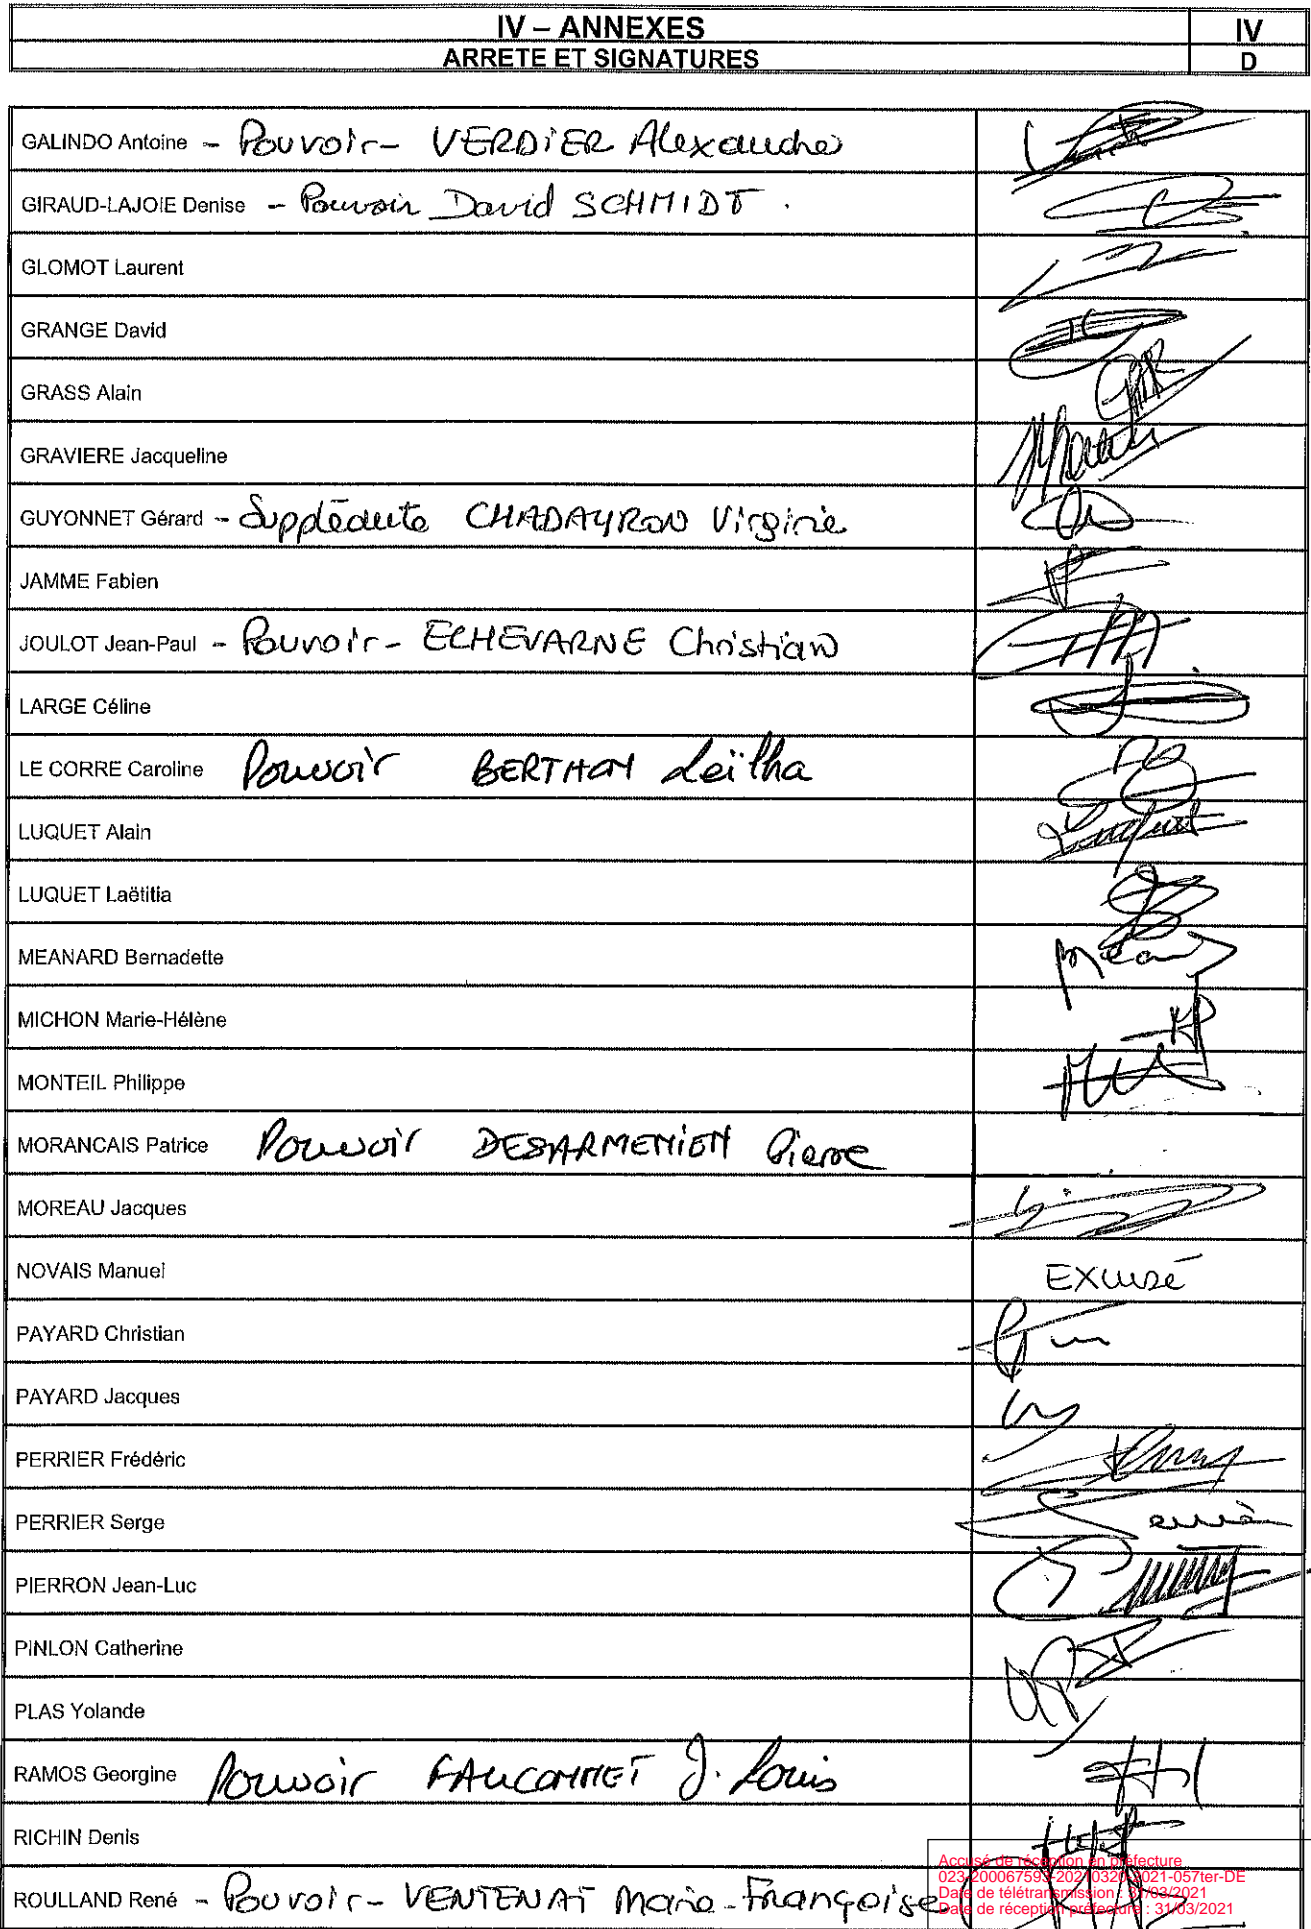 IV – ANNEXES
IV
ARRETE ET SIGNATURES
D
GALINDO Antoine - Pouvoir - VERDIER Alexandre
GIRAUD-LAJOIE Denise - Pouvoir David SCHMIDT.
GLOMOT Laurent
GRANGE David
GRASS Alain
GRAVIERE Jacqueline
GUYONNET Gérard - Suppléante CHADAYRON Virginie
JAMME Fabien
JOULOT Jean-Paul - Pouvoir - ECHEVARNE Christian
LARGE Céline
LE CORRE Caroline Pouvoir BERTHON Leïlha
LUQUET Alain
LUQUET Laëtitia
MEANARD Bernadette
MICHON Marie-Hélène
MONTEIL Philippe
MORANCAIS Patrice Pouvoir DESARMENIEN Pierre
MOREAU Jacques
NOVAIS Manuel EXCUSÉ
PAYARD Christian
PAYARD Jacques
PERRIER Frédéric
PERRIER Serge
PIERRON Jean-Luc
PINLON Catherine
PLAS Yolande
RAMOS Georgine Pouvoir FAUCONNET J. Louis
RICHIN Denis
ROULLAND René - Pouvoir - VENTENAT Marie-Françoise
Accusé de réception en préfecture
023-200067593-20210320-2021-057ter-DE
Date de télétransmission : 31/03/2021
Date de réception préfecture : 31/03/2021